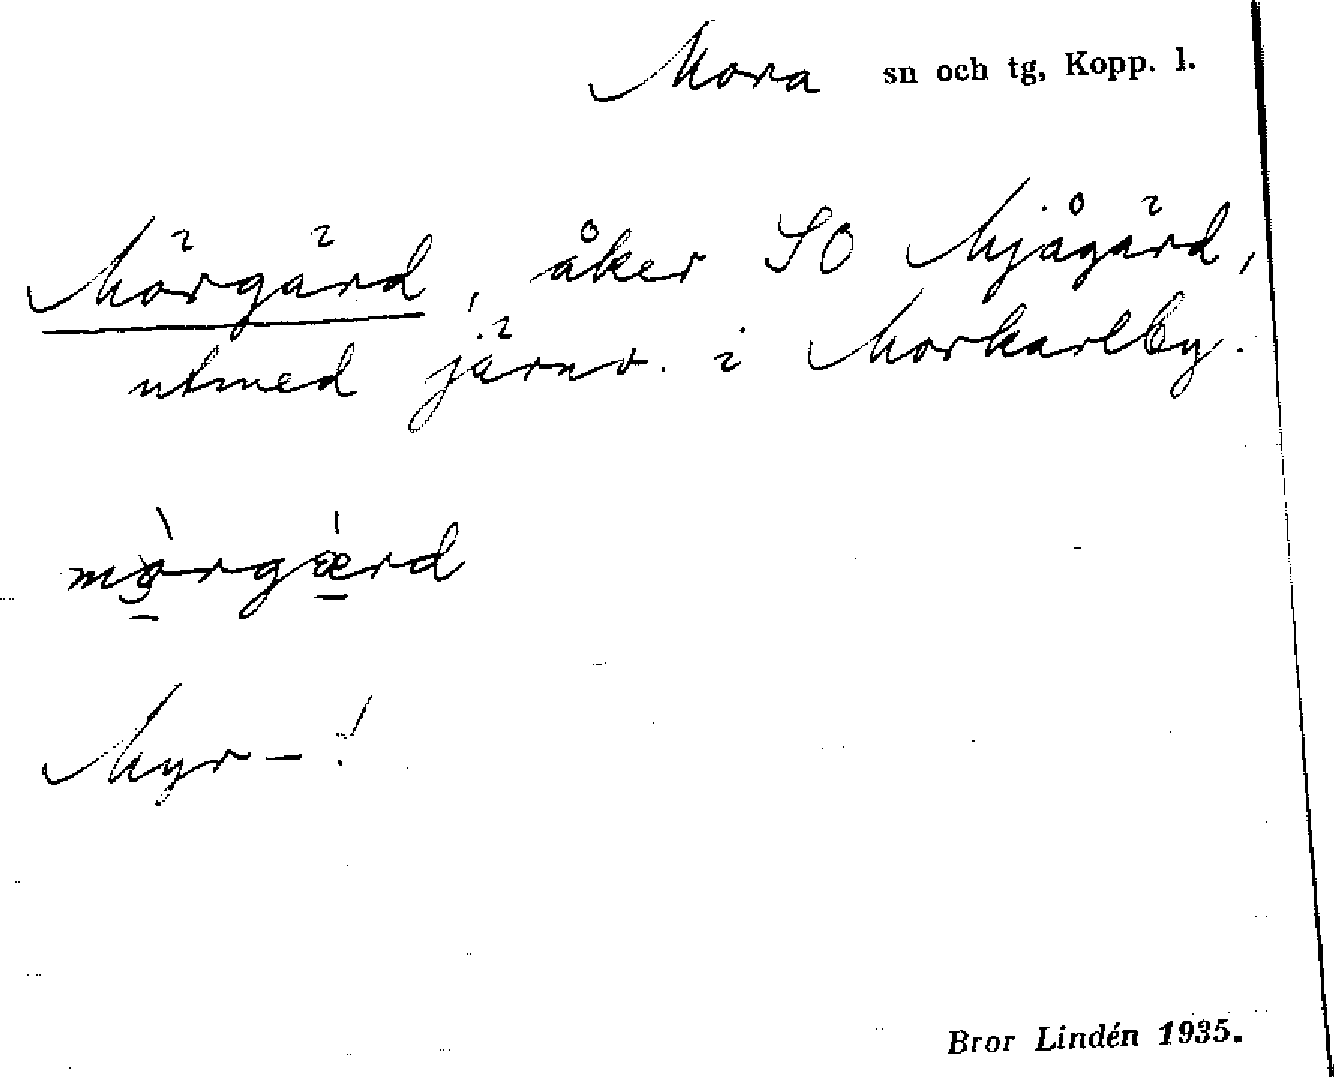 Mora sn och tg, Kopp. l.
Mörgärd, åker SO Mjågärd,
utmed järnv. i Morkarlby.
mòrgǽrd
Myr-!
Bror Lindén 1935.